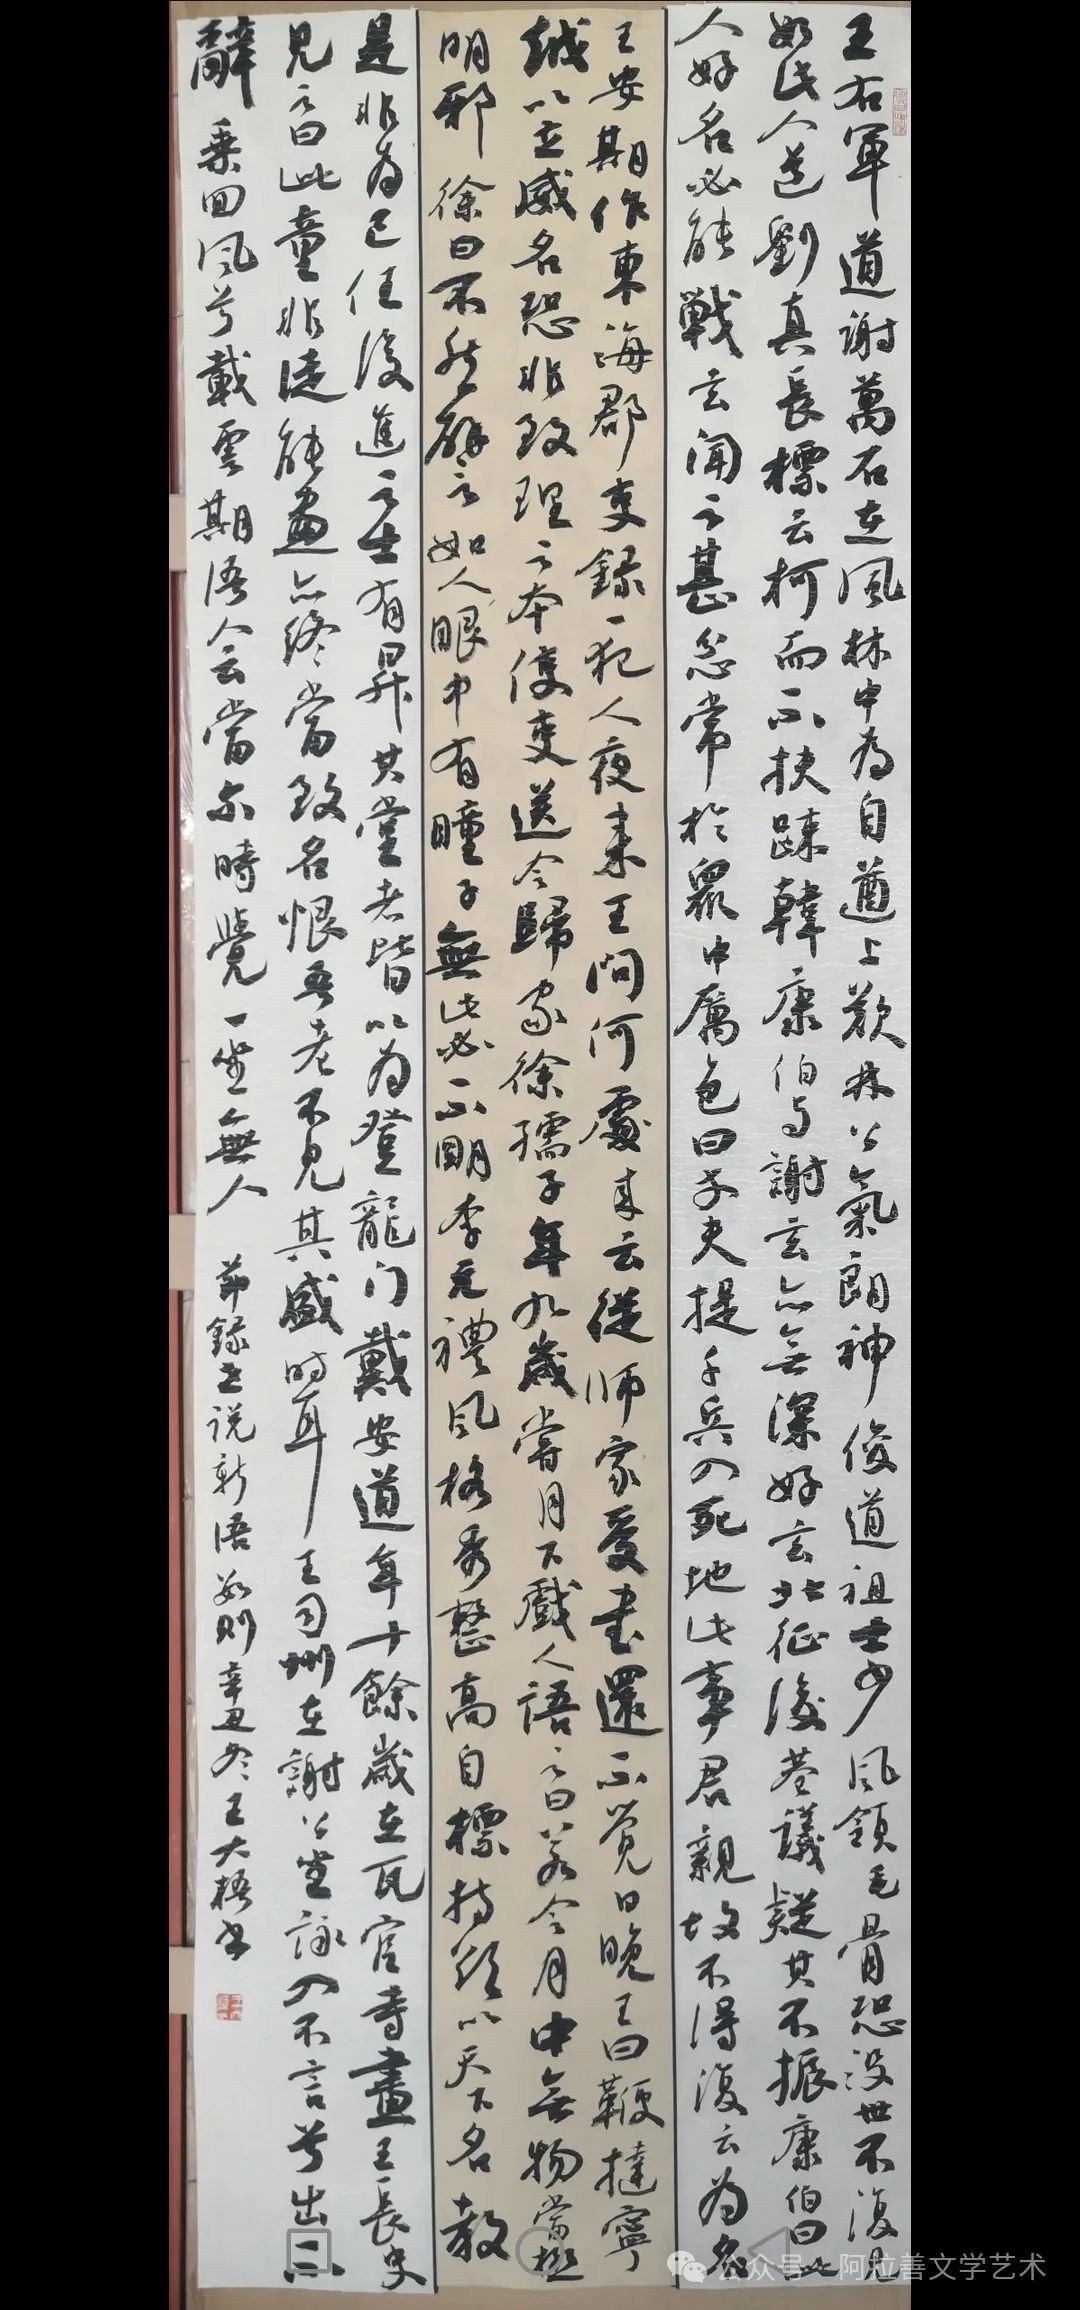 王右軍道謝萬石在風林中為自遒上歎林公氣朗神俊道祖士少風領毛骨恐没世不復見
如此人道劉真長標云柯而不扶踈韓康伯与謝玄亦無深好玄北征後巷議疑其不振康伯曰此
人好名必能戰玄聞之甚忿常於眾中厲色曰丈夫提千兵入死地以事君親故不得復云為名
王安期作東海郡吏録一犯人夜來王問何處來云從師家受書還不覺日晚王曰鞭撻寧
越以立威名恐非致理之本使吏送令歸家徐孺子年九歲嘗月下戲人語之曰若令月中無物當極
明邪徐曰不然辟之如人眼中有瞳子無此必不明李元禮風格秀整高自標持欲以天下名教
是非為己任後進之士有昇其堂者皆以為登龍门戴安道年十餘歲在瓦官寺畫王長史
見之曰此童非徒能畫亦終當致名恨吾老不見其盛時耳王司州在謝公坐詠入不言兮出不
辭乘回風兮載雲期語人云當尔時覺一坐無人
節録世说新语數则辛丑冬王大梧書
公众号·阿拉善文学艺术